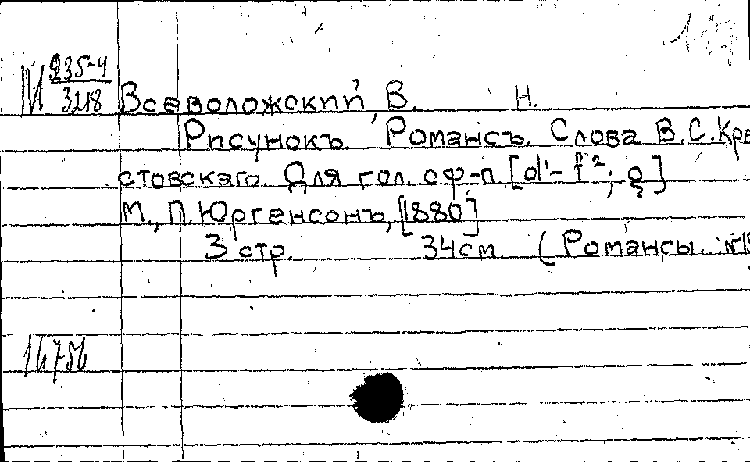 М 235-4
3218
Всеволожский, В. Н.
Рисунокъ. Романсъ. Слова В.С.Кре
стовскаго. Для гол. с ф-п. [d¹-f²; g]
М., П. Юргенсонъ, [1880]
3 стр. 34 см (Романсы.